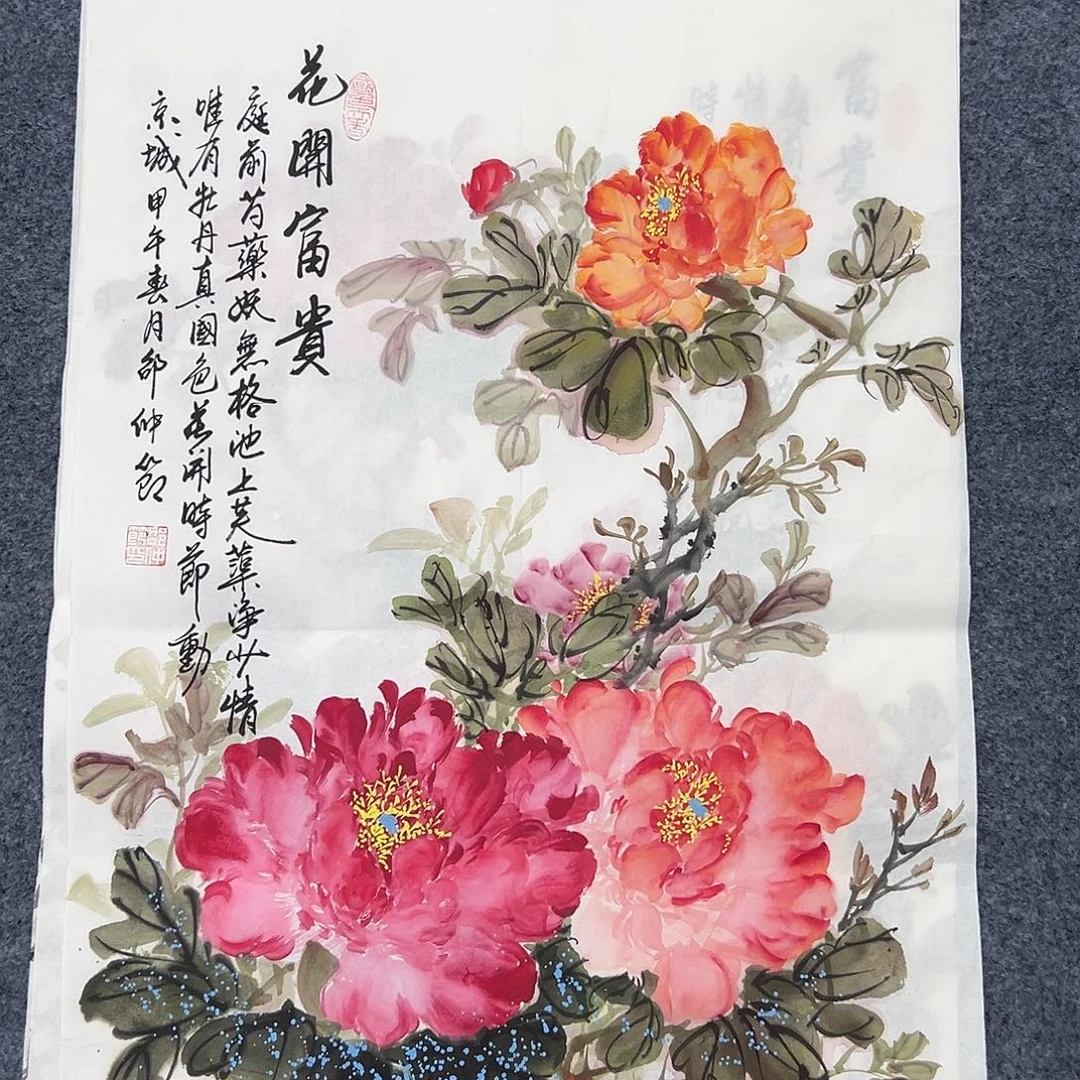 花開富貴
庭前芍藥妖無格池上芙蕖淨少情
唯有牡丹真國色花開時節動
京城甲午春月邵仲節
邵仲節